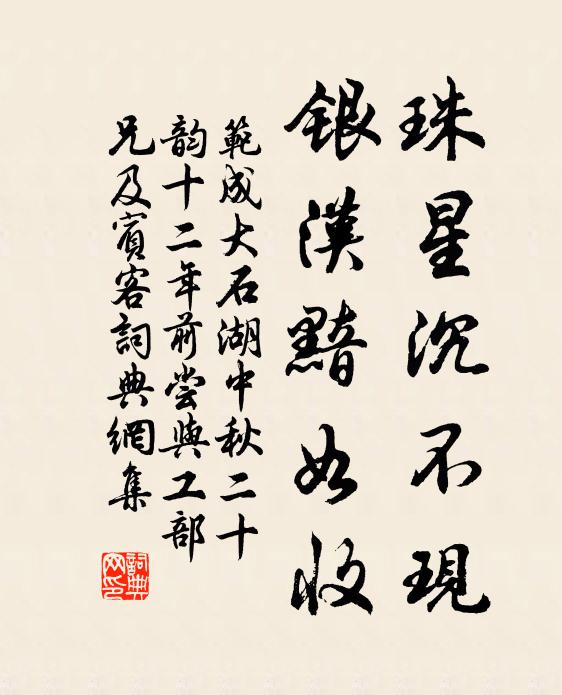 珠星沉不現
銀漢黯如收
範成大石湖中秋二十
韵十二年前嘗與工部
兄及賓客詞典網集
詞典网印